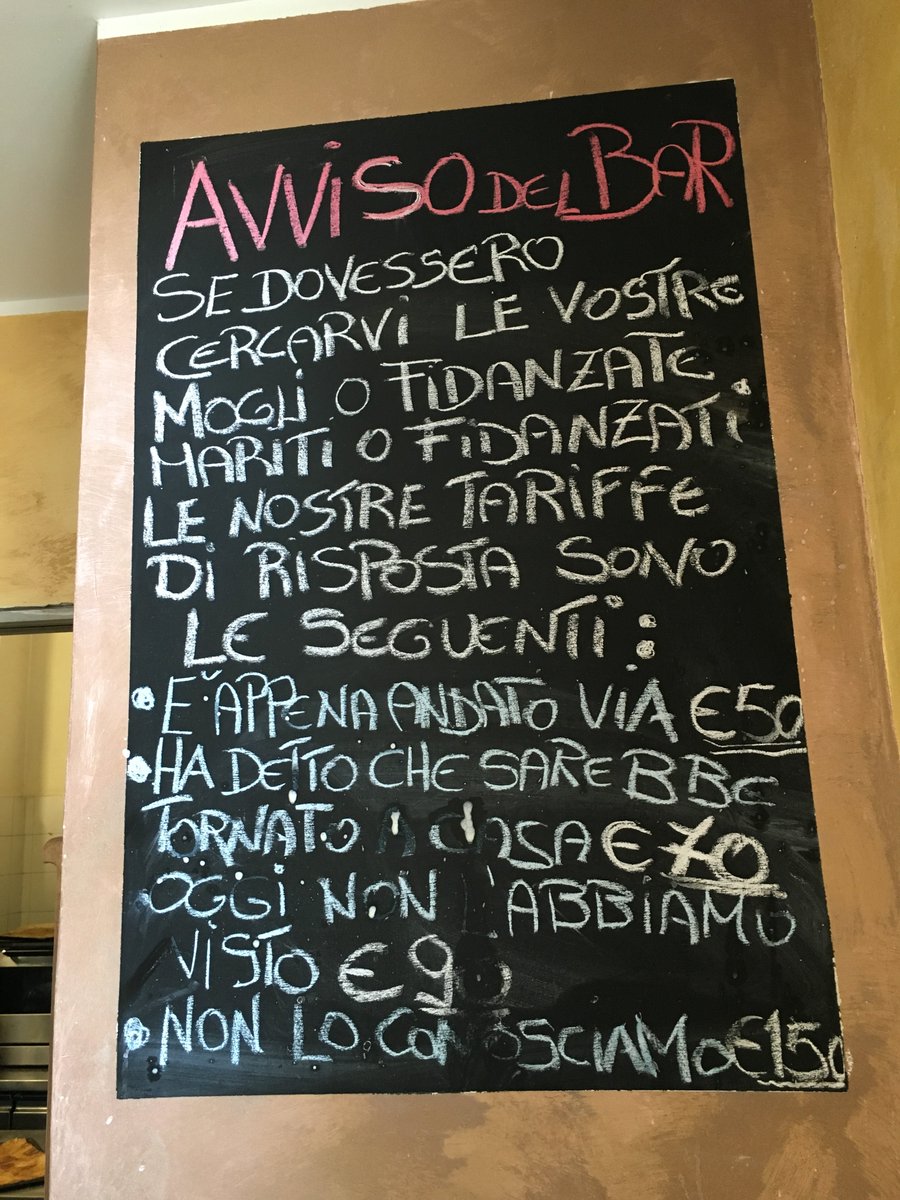 AVViSO DEL BAR
SE DOVESSERO
CERCARVi LE VOSTRE
MOGLi O FiDANZATE
MARiTi O FiDANZATi
LE NOSTRE TARiFFE
Di RiSPOSTA SONO
LE SEGUENTi:
• E' APPENA ANDATO ViA €50
• HA DETTO CHE SAREBBE
TORNATO A CASA €70
• OGGi NON L'ABBiAMO
ViSTO €90
• NON LO CONOSCiAMO €150